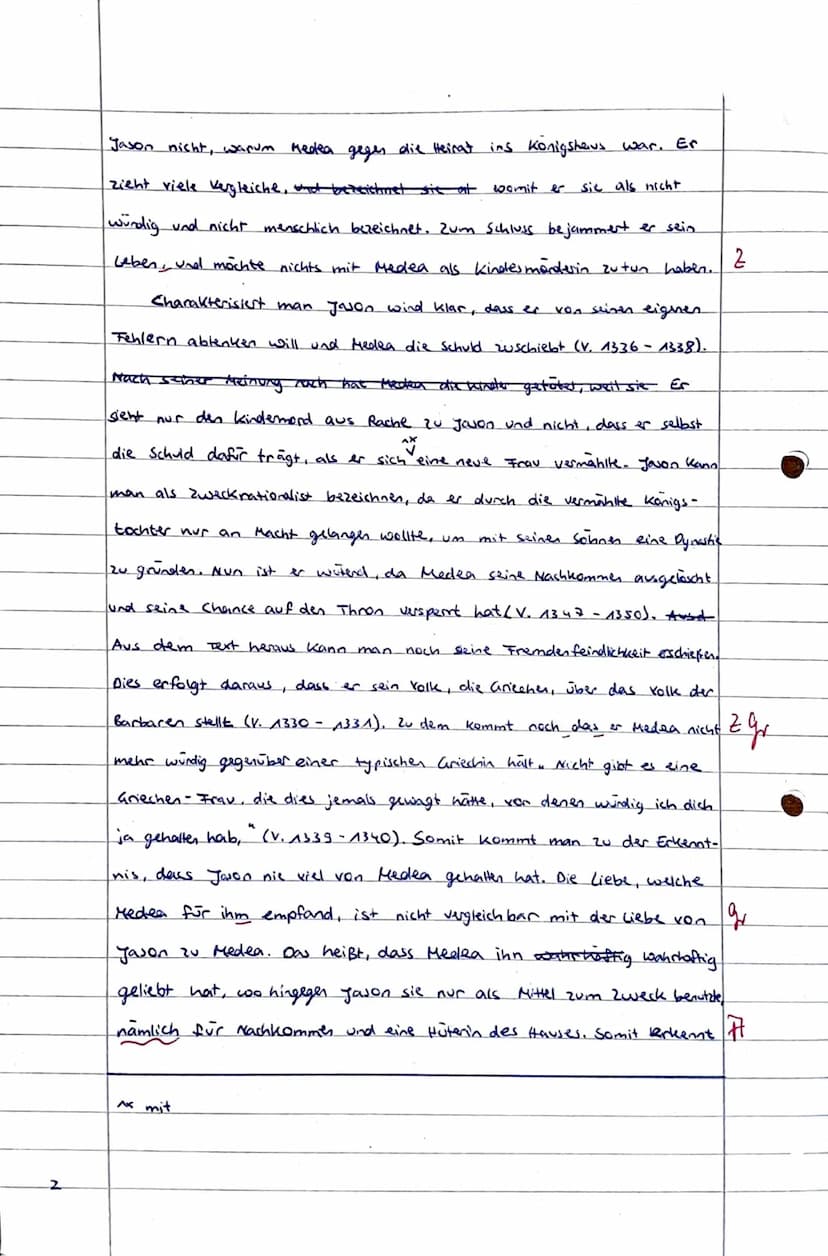 Jason nicht, warum Medea gegen die Heirat ins Königshaus war. Er
zieht viele Vergleiche, und bezeichnet sie al womit er sie als nicht
würdig und nicht menschlich bezeichnet. Zum Schluss bejammert er sein
Leben, und möchte nichts mit Medea als Kindesmörderin zutun haben. Z
Charakterisiert man Jason wird klar, dass er von seinen eigenen
Fehlern ablenken will und Medea die Schuld zuschiebt (V. 1336 - 1338).
Nach seiner Meinung nach hat Medea die Kinder getötet, weil sie Er
sieht nur den Kindermord aus Rache zu Jason und nicht, dass er selbst
die Schuld dafür trägt, als er sich eine neue Frau vermählte. Jason kann
man als Zweckrationalist bezeichnen, da er durch die vermählte Königs-
tochter nur an Macht gelangen wollte, um mit seinen Söhnen eine Dynastie
zu gründen. Nun ist er wütend, da Medea seine Nachkommen ausgelöscht
und seine Chance auf den Thron versperrt hat (V. 1347 - 1350). Ausd
Aus dem Text heraus kann man noch seine Fremdenfeindlichkeit erschießen.
Dies erfolgt daraus, dass er sein Volk, die Griechen, über das Volk der
Barbaren stellt (V. 1330 - 1331). Zu dem kommt noch das er Medea nicht Z Gr
mehr würdig gegenüber einer typischen Griechin hält. „Nicht gibt es eine
Griechen-Frau, die dies jemals gewagt hätte, vor denen würdig ich dich
ja gehalten hab," (V. 1339 - 1340). Somit kommt man zu der Erkennt-
nis, dass Jason nie viel von Medea gehalten hat. Die Liebe, welche
Medea für ihm empfand, ist nicht vergleichbar mit der Liebe von Gr
Jason zu Medea. Das heißt, dass Medea ihn wahrhaftig wahrhaftig
geliebt hat, wo hingegen Jason sie nur als Mittel zum Zweck benutzte,
nämlich für Nachkommen und eine Hüterin des Hauses. Somit erkennt A
mit
2